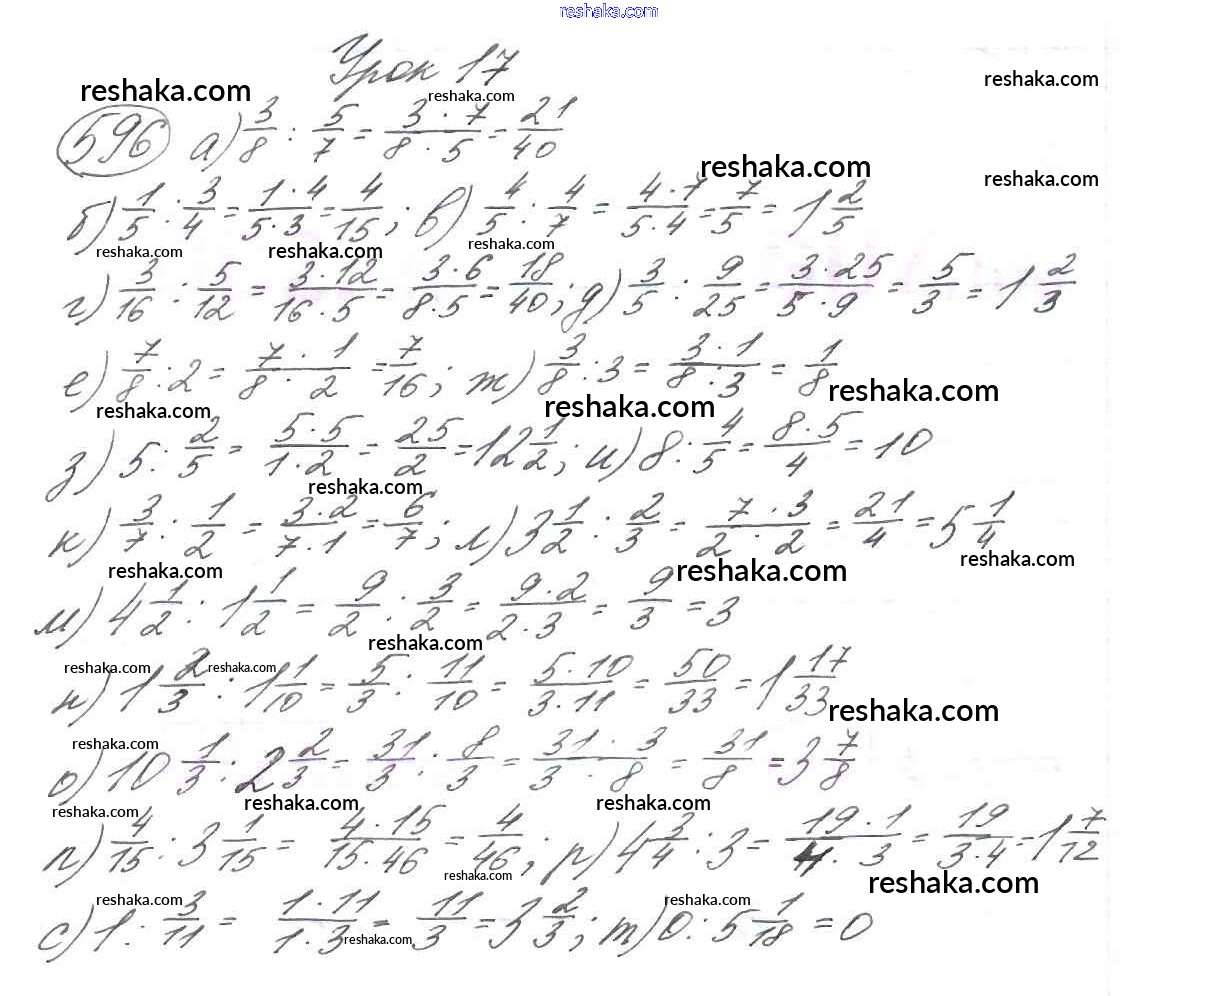 reshaka.com
Урок 17
reshaka.com reshaka.com reshaka.com
596 а) 3/8 : 5/7 = 3·7/8·5 = 21/40
reshaka.com reshaka.com
б) 1/5 : 3/4 = 1·4/5·3 = 4/15; в) 4/5 : 4/7 = 4·7/5·4 = 7/5 = 1 2/5
reshaka.com reshaka.com reshaka.com
г) 3/16 : 5/12 = 3·12/16·5 = 3·6/8·5 = 18/40; д) 3/5 : 9/25 = 3·25/5·9 = 5/3 = 1 2/3
е) 7/8 : 2 = 7·1/8·2 = 7/16; ж) 3/8 : 3 = 3·1/8·3 = 1/8
reshaka.com reshaka.com reshaka.com
з) 5 : 2/5 = 5·5/1·2 = 25/2 = 12 1/2; и) 8 : 4/5 = 8·5/4 = 10
reshaka.com
к) 3/7 : 1/2 = 3·2/7·1 = 6/7; л) 3 1/2 : 2/3 = 7·3/2·2 = 21/4 = 5 1/4
reshaka.com reshaka.com reshaka.com
м) 4 1/2 : 1 1/2 = 9/2 : 3/2 = 9·2/2·3 = 9/3 = 3
reshaka.com
reshaka.com reshaka.com
н) 1 2/3 : 1 1/10 = 5/3 : 11/10 = 5·10/3·11 = 50/33 = 1 17/33
reshaka.com
reshaka.com
о) 10 1/3 : 2 2/3 = 31/3 : 8/3 = 31·3/3·8 = 31/8 = 3 7/8
reshaka.com reshaka.com reshaka.com
п) 4/15 : 3 1/15 = 4·15/15·46 = 4/46; р) 4 3/4 : 3 = 19·1/4·3 = 19/3·4 = 1 7/12
reshaka.com reshaka.com
reshaka.com reshaka.com
с) 1 : 3/11 = 1·11/1·3 = 11/3 = 3 2/3; т) 0 : 5 1/18 = 0
reshaka.com